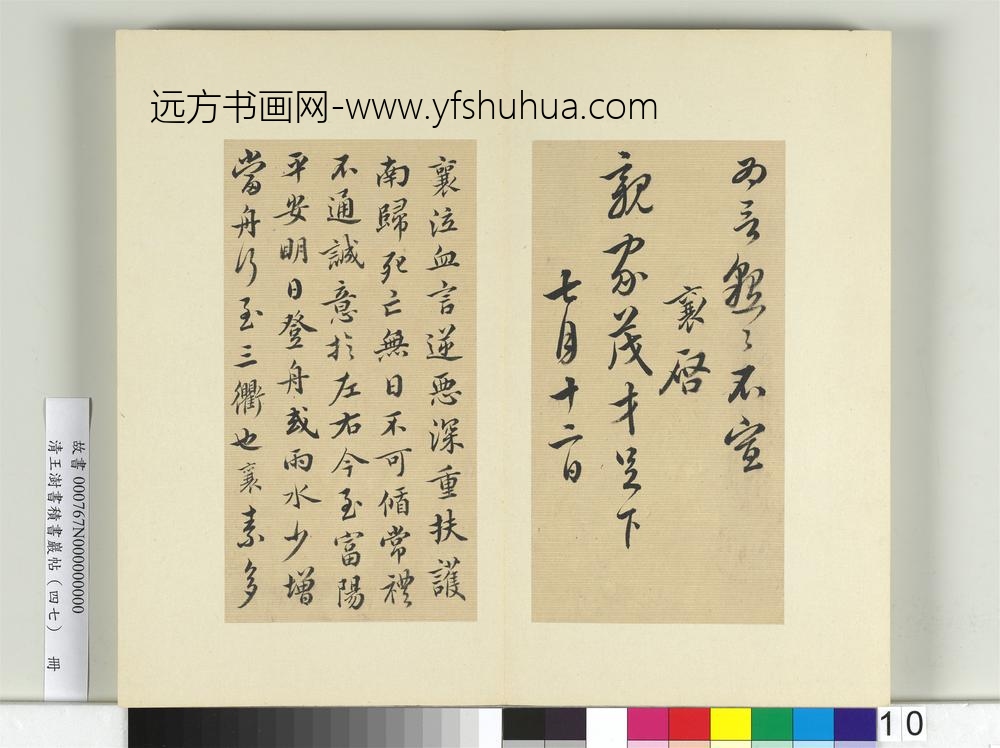 远方书画网-www.yfshuhua.com
為言 不宣
襄啓
親家茂才足下
七月十二日
襄泣血言逆惡深重扶護
南歸死亡無日不可循常禮
不通誠意於左右今至富陽
平安明日登舟或雨水少增
當舟行至三衢也襄素多
故書 000767N000000000
清王澍書積書巖帖（四七） 冊
10